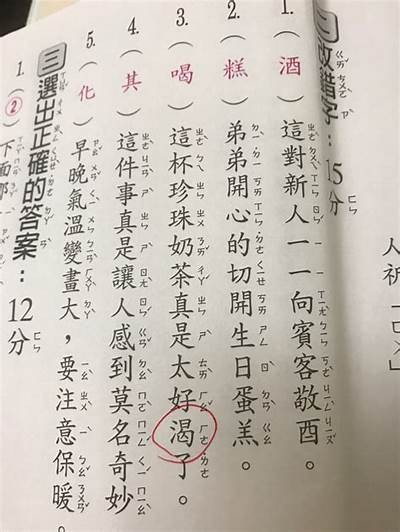 人祈
二 改錯字：15分
1.（酒）這對新人一一向賓客敬酉。
2.（糕）弟弟開心的切開生日蛋羔。
3.（喝）這杯珍珠奶茶真是太好渴了。
4.（其）這件事真是讓人感到莫名奇妙
5.（化）早晚氣溫變畫大，要注意保暖。
三 選出正確的答案：12分
1.（②）下面那